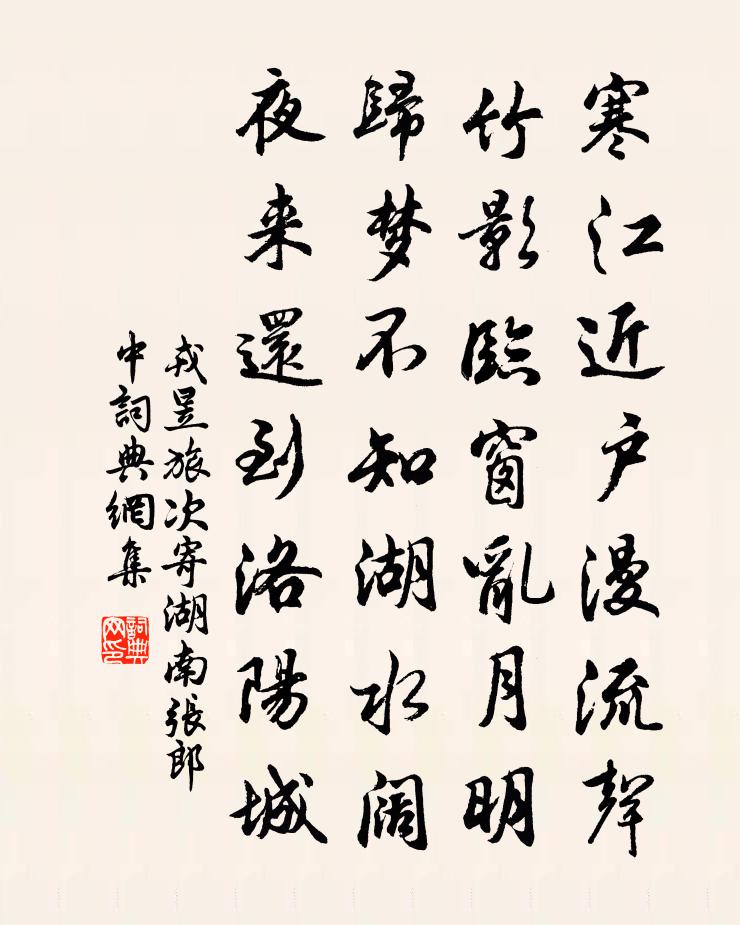 寒江近户漫流聲
竹影臨窗亂月明
歸梦不知湖水阔
夜来還到洛陽城
戎昱旅次寄湖南張郎
中詞典網集
詞典网印